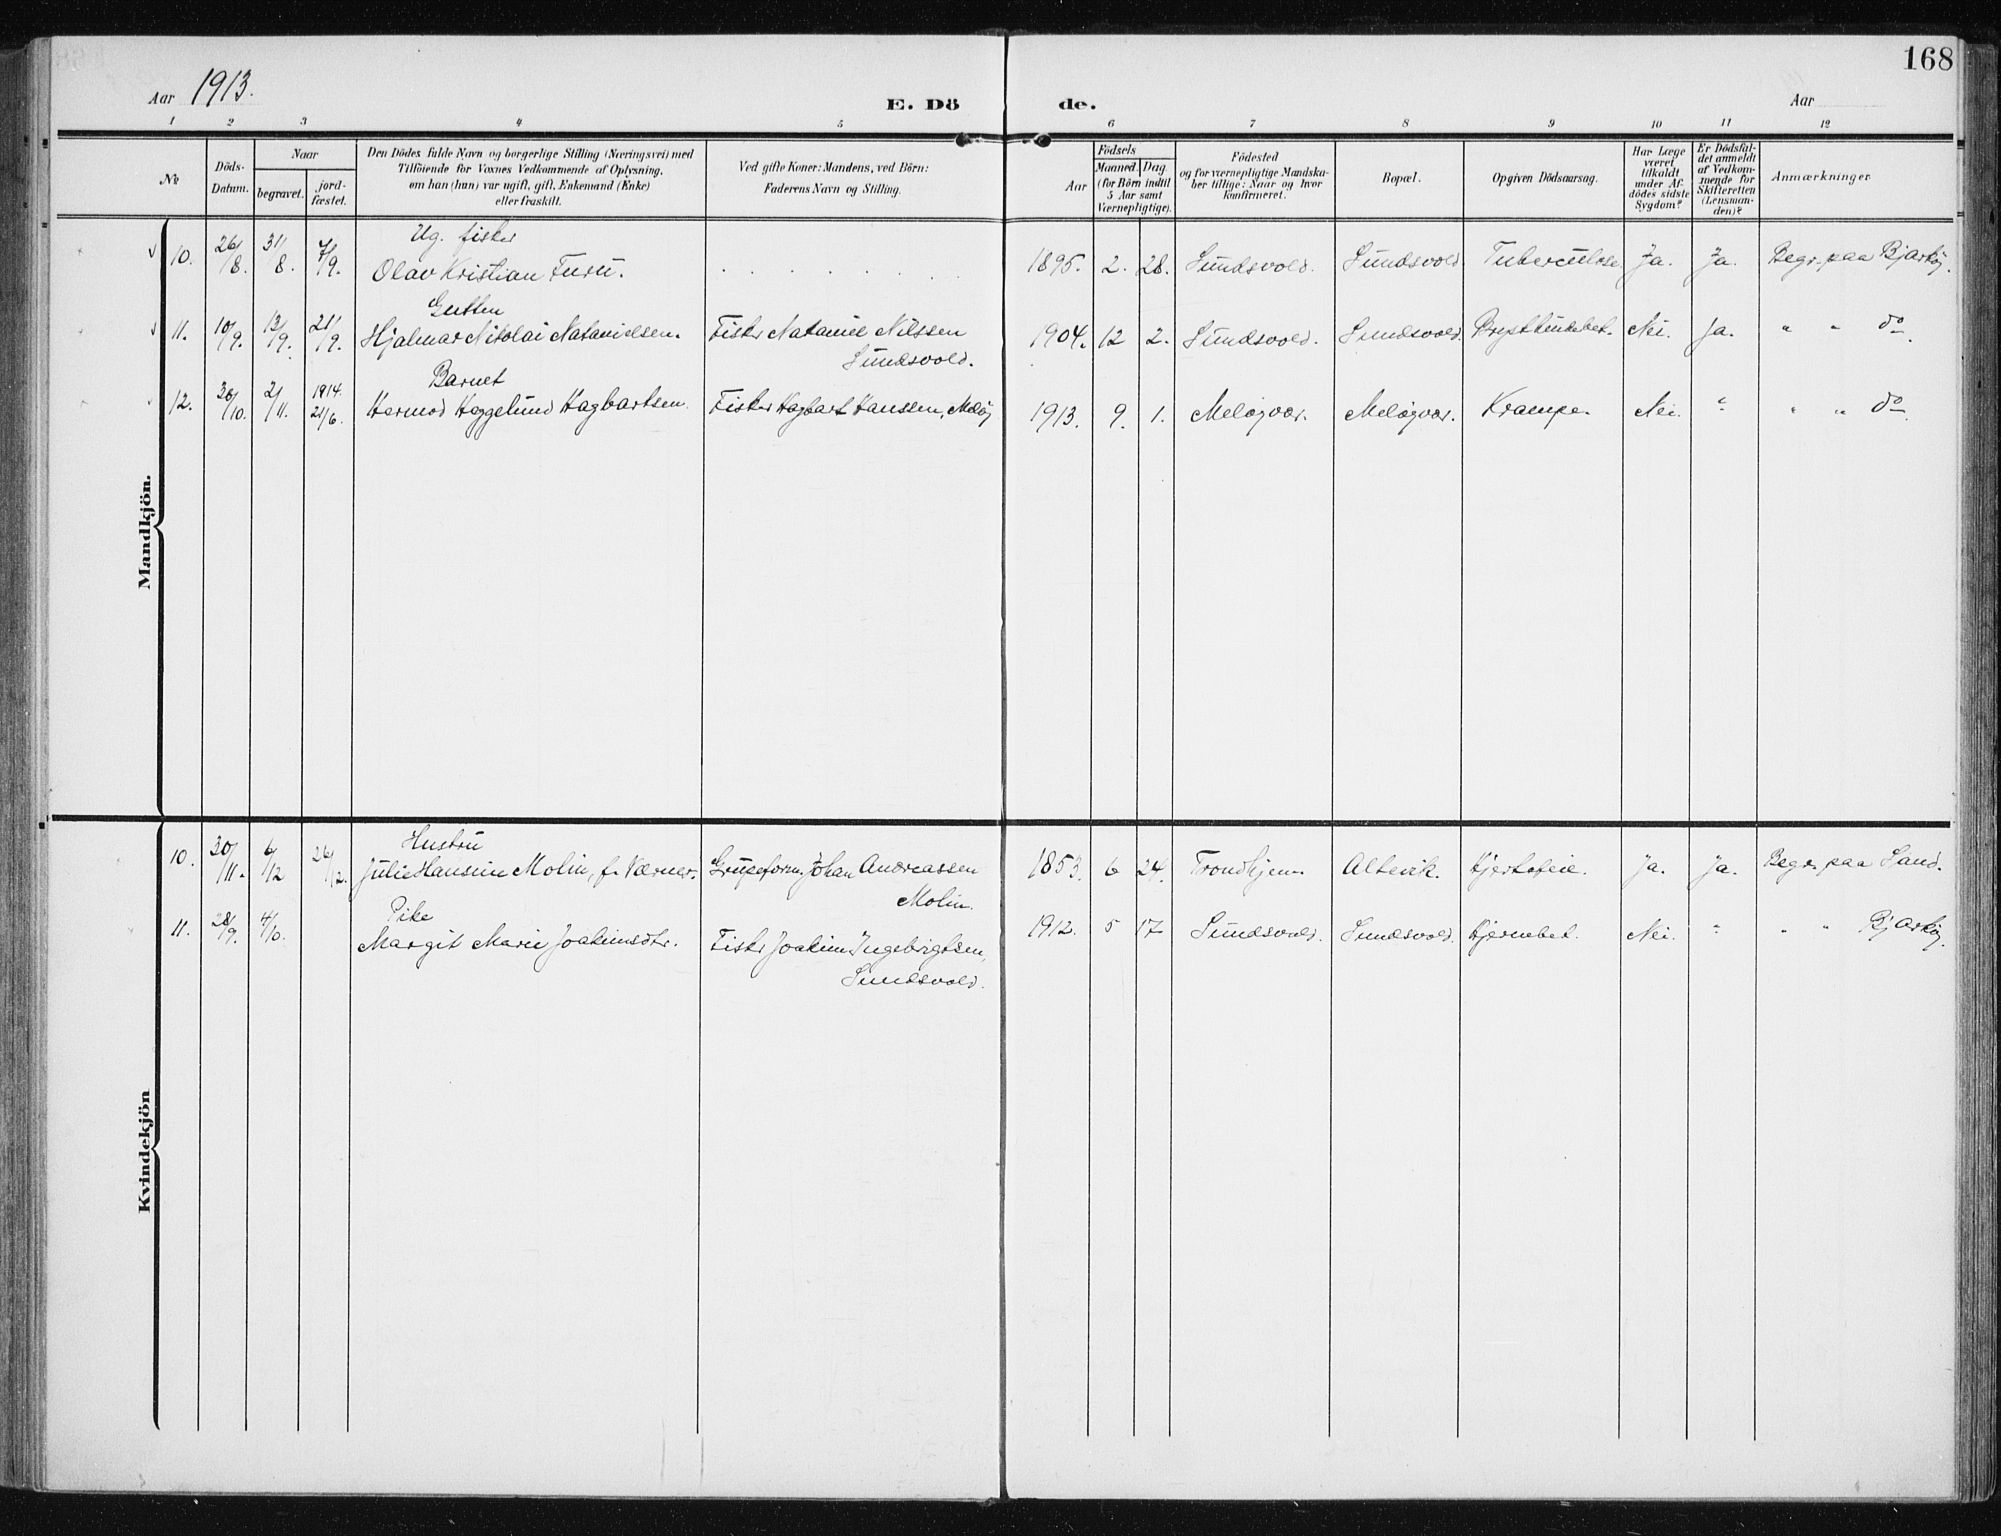 168
Aar 1913.
E. Dö de.
Aar
1 2 3 4 5 6 7 8 9 10 11 12
№
Döds-Datum.
Naar
begravet.
jord-fæstet.
Den Dödes fulde Navn og borgerlige Stilling (Næringsvei) med
Tilföiende for Voxnes Vedkommende af Oplysning,
om han (hun) var ugift, gift, Enkemand (Enke)
eller fraskilt.
Ved gifte Koner: Mandens, ved Börn:
Faderens Navn og Stilling.
Födsels
Aar
Maaned. Dag.
(for Börn indtil
5 Aar samt
Værnepligtige).
Födested
og for værnepligtige Mandska-
ber tillige: Naar og hvor
konfirmeret.
Bopæl.
Opgiven Dödsaarsag.
Har Læge
været
tilkaldt
under Af-
dödes sidste
Sygdom?
Er Dödsfal-
det anmeldt
af Vedkom-
mende for
Skifteretten
(Lensman-
den)?
Anmærkninger
Mandkjön.
Ug. fisker
10. 26/8. 31/8. 7/9. Olav Kristian Furu. 1895. 2. 28. Sundsvold. Sundsvold. Tuberculose. Ja. Ja. Begr. paa Bjarköy.
Gutten
11. 10/9. 13/9. 21/9. Hjalmar Nikolai Natanielsen. Fisker Nataniel Nilssen 1904. 12 2. Sundsvold. Sundsvold. Brysthindebet. Nei. Ja. " " do.
Sundsvold.
Barnet
12. 30/10. 2/11. 1914 21/6. Hermod Heggelund Hagbartsen. Fisker Hagbart Hanssen, Meløy 1913. 9. 1. Meløyvær. Meløyvær. Krampe. Nei. " " " do.
Kvindekjön
Hustru
10. 30/11. 6/12 26/12. Julie Hansine Molin, f. Værner. Grubeform. Johan Andreassen 1853. 6 24. Trondhjem. Altevik. Hjertefeil. Ja. Ja. Begr. paa Sand.
Molin.
Pike
11. 28/9. 4/10. Margit Marie Joakimsdtr. Fisker Joakim Ingebrigtsen, 1912. 5 17 Sundsvold. Sundsvold. Hjernebet. Nei. " " " Bjarköy.
Sundsvold.